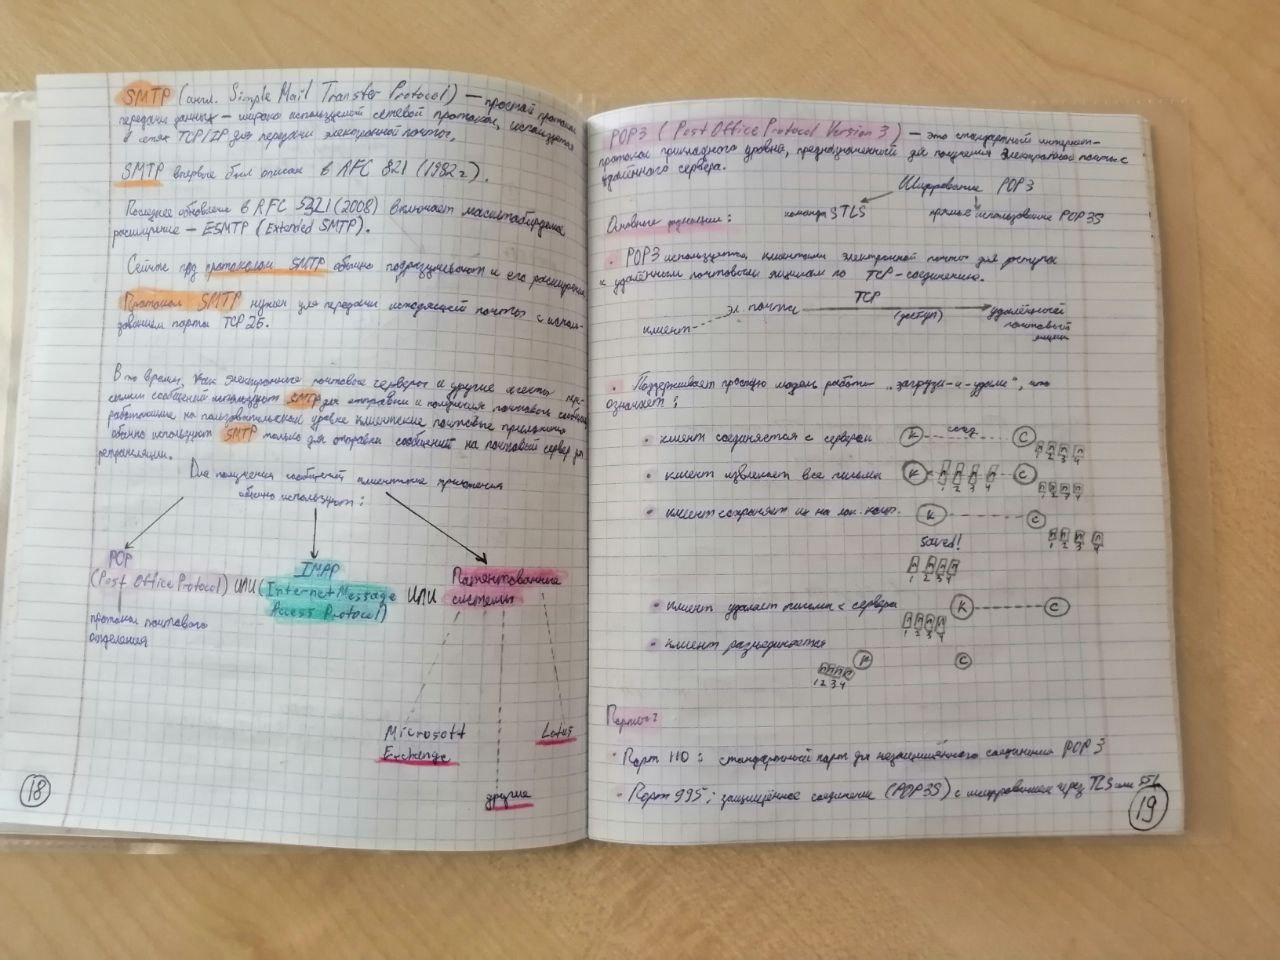 SMTP (англ. Simple Mail Transfer Protocol) — простой протокол
передачи данных — широко используемый сетевой протокол, используется
в сетях TCP/IP для передачи электронной почты.
SMTP впервые был описан в RFC 821 (1982 г).
Последнее обновление в RFC 5321 (2008) включает масштабируемое
расширение — ESMTP (Extended SMTP).
Сейчас под протоколом SMTP обычно подразумевают и его расширения
Протокол SMTP нужен для передачи исходящей почты с исполь-
зованием порта TCP 25.
В то время, как электронные почтовые серверы и другие агенты пере-
сылки сообщений используют SMTP для отправки и получения почтовых сообщений
работающие на пользовательском уровне клиентские почтовые приложения
обычно используют SMTP только для отправки сообщений на почтовый сервер для
ретрансляции.
Для получения сообщений клиентские приложения
обычно используют:
POP
(Post Office Protocol) или
протокол почтового
отделения
IMAP
(Internet Message
Access Protocol)
или
Патентованные
системы
Microsoft
Exchange
Lotus
другие
18
POP3 (Post Office Protocol Version 3) — это стандартный интернет-
протокол прикладного уровня, предназначенный для получения электронной почты с
удалённого сервера.
Шифрование POP3
команда STLS
прямое использование POP3S
Основные функции:
• POP3 используется клиентами электронной почты для доступа
к удалённым почтовым ящикам по TCP-соединению.
клиент
эл. почты
TCP
(доступ)
удалённый
почтовый
ящик
• Поддерживает простую модель работы „загрузи-и-удали“, что
означает:
• клиент соединяется с сервером
К соед С
1 2 3 4
• клиент извлекает все письма
К П П П П С
1 2 3 4
1 2 3 4
• клиент сохраняет их на лок. комп.
К С
Saved!
1 2 3 4
П П П П
1 2 3 4
• клиент удаляет письма с сервера
К С
1 2 3 4
• клиент разъединяется
К С
1 2 3 4
Порты:
• Порт 110: стандартный порт для незащищённого соединения POP3
• Порт 995: защищённое соединение (POP3S) с шифрованием через TLS или SSL
19